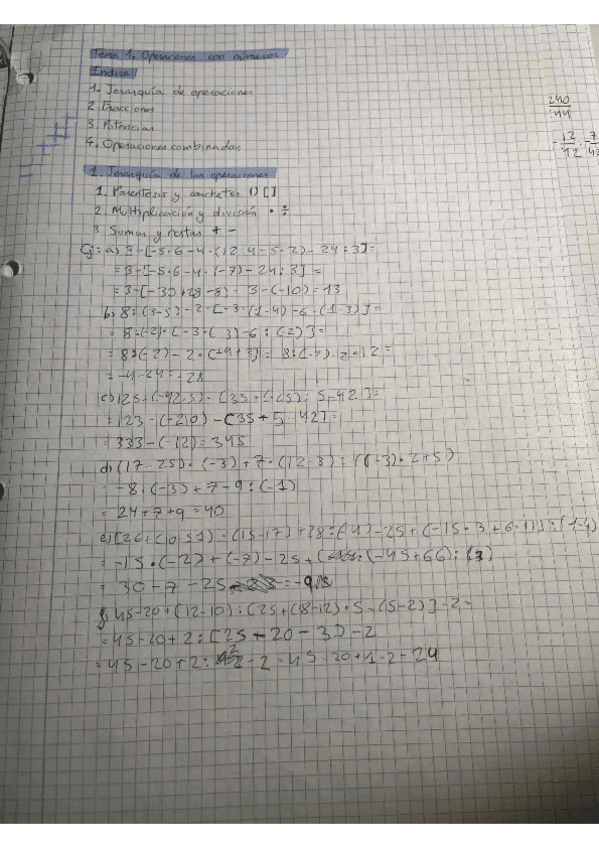 Tema 1. Operaciones con números
Indice
1. Jerarquía de operaciones
2. Fracciones
3. Potencias
4. Operaciones combinadas
240
44
- 12/42 = 7/42
1. Jerarquía de las operaciones
1. Parentesis y corchetes () []
2. Multiplicación y división • ÷
3 Sumas y restas + -
Ej: a) 3-[-5·6-4·(12:4-5·2)-24:3]=
=3-[-5·6-4·(-7)-24:3]=
=3-[-30+28-8)- 3-(-10)=13
b) 8:(3-5)-2·[-3·(1-4)-6:(1-3)]=
= 8:(-2)·[-3·(3)-6:(2)]=
=8:(-2)-2·[+9+3]= 8:(-2) 2·12=
= -4-24=-28
c) 125-(-42·5)-[35+(-25):5-42]=
= 123-(-210)-[35+5 42]=
= 333-(-12)=345
d) (17-25)·(-3)+7·(12-3):((-3)·2+5)
-8·(-3)+7-9:(-1)
= 24+7+9=40
= -15·(-2)+(-7)-25+ (-45+66):(3)
= 30-7-25
f) 45-20+(12-10):[25+(8-12)·5-(5-2)]-2=
=45-20+2:[25-20-3)-2
=45-20+2:2-2=45 20+1-2=24